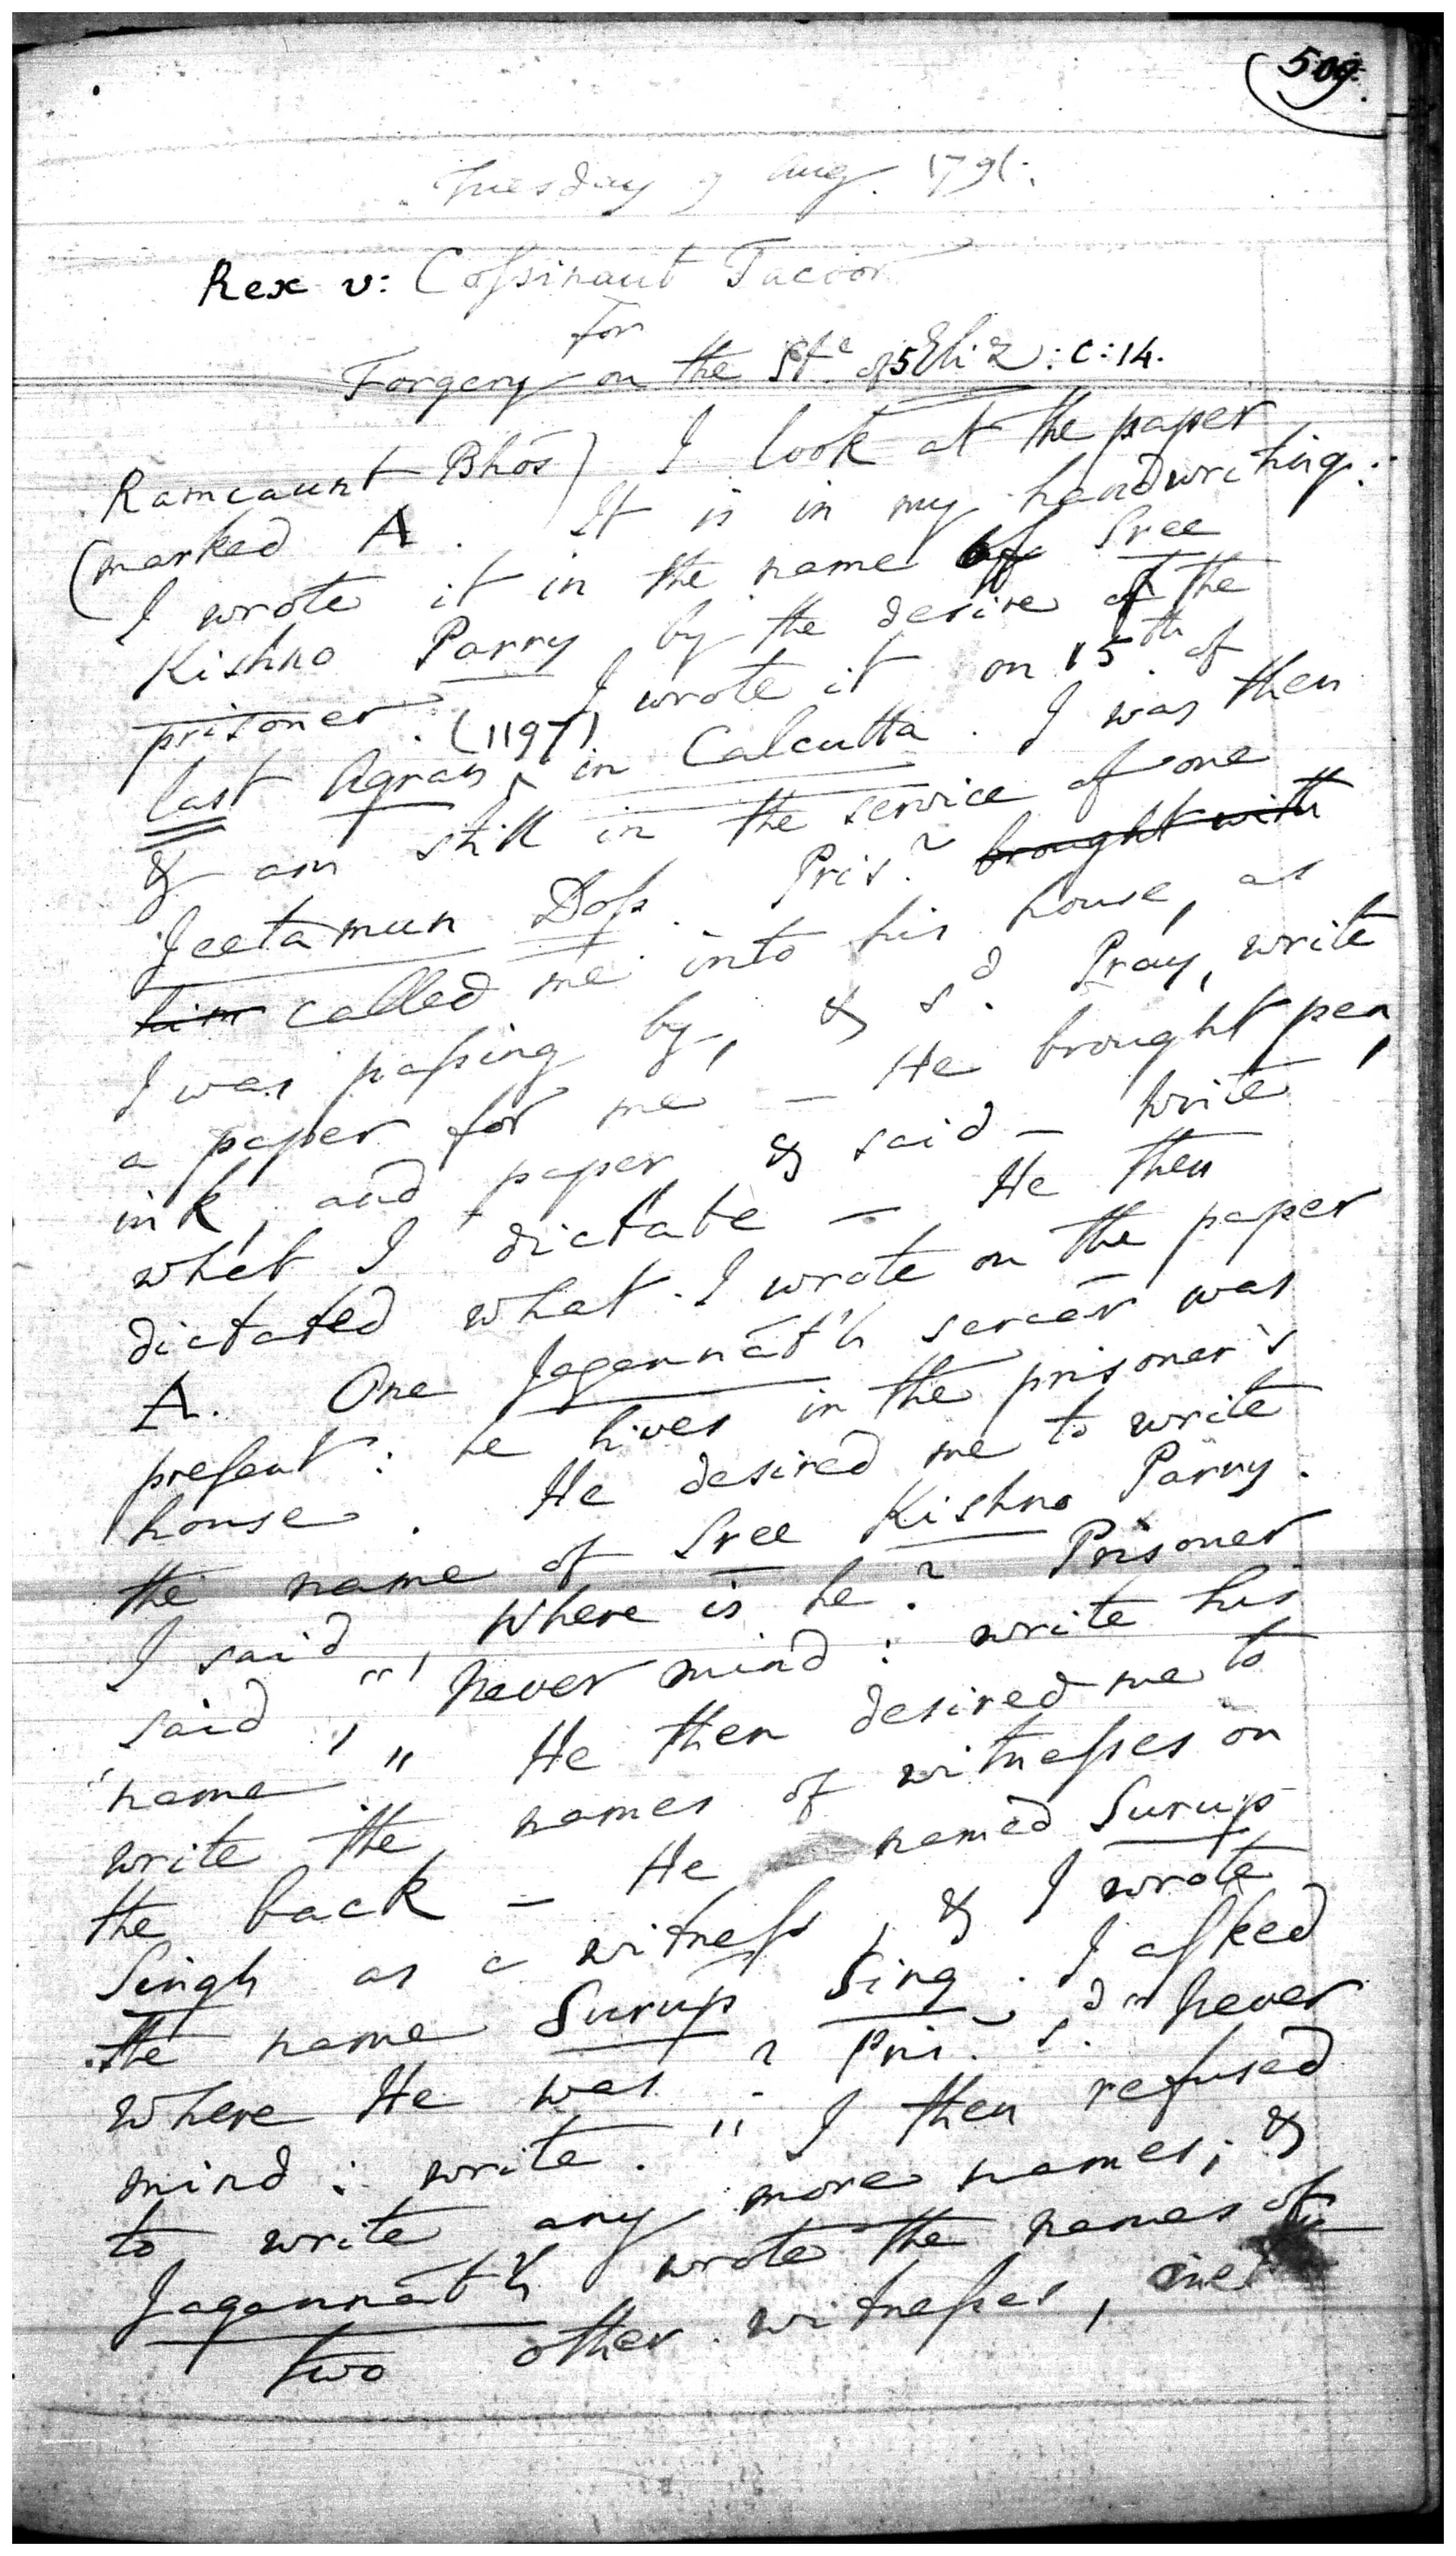 509.
Tuesday 9 Aug. 1791.
Rex v: Coſsinaut Tacoor
for
Forgery on the Stᵉ of 5 Eliz: c: 14.
Ramcaunt Bhōs) I look at the paper
(marked A. It is in my handwriting:
I wrote it in the name of Sree
Kishno Parry by the desire of the
prisoner. I wrote it on 15th. of
last Agran (1197) in Calcutta. I was then
& am still in the service of one
Jeetamun Doſs. Prisr. brought with
him called me into his house, as
I was paſsing by, & sd. Pray, write
a paper for me — He brought pen,
ink, and paper & said — write
what I dictate — He then
dictated what I wrote on the paper
A. One Jagannāt'h sercār was
preſent: he lives in the prisoner's
house. He desired me to write
the name of Sree Kishno Parry.
I said, where is he? Prisoner
said, "never mind: write his
"name." He then desired me to
write the names of witneſses on
the back — He named Surup
Singh as a witneſs, & I wrote
the name Surup Sing. I aſked
where He was? Pris. sd. "never
mind: write." I then refused
to write any more names; &
Jagannāt'h wrote the names of
two other witneſses,